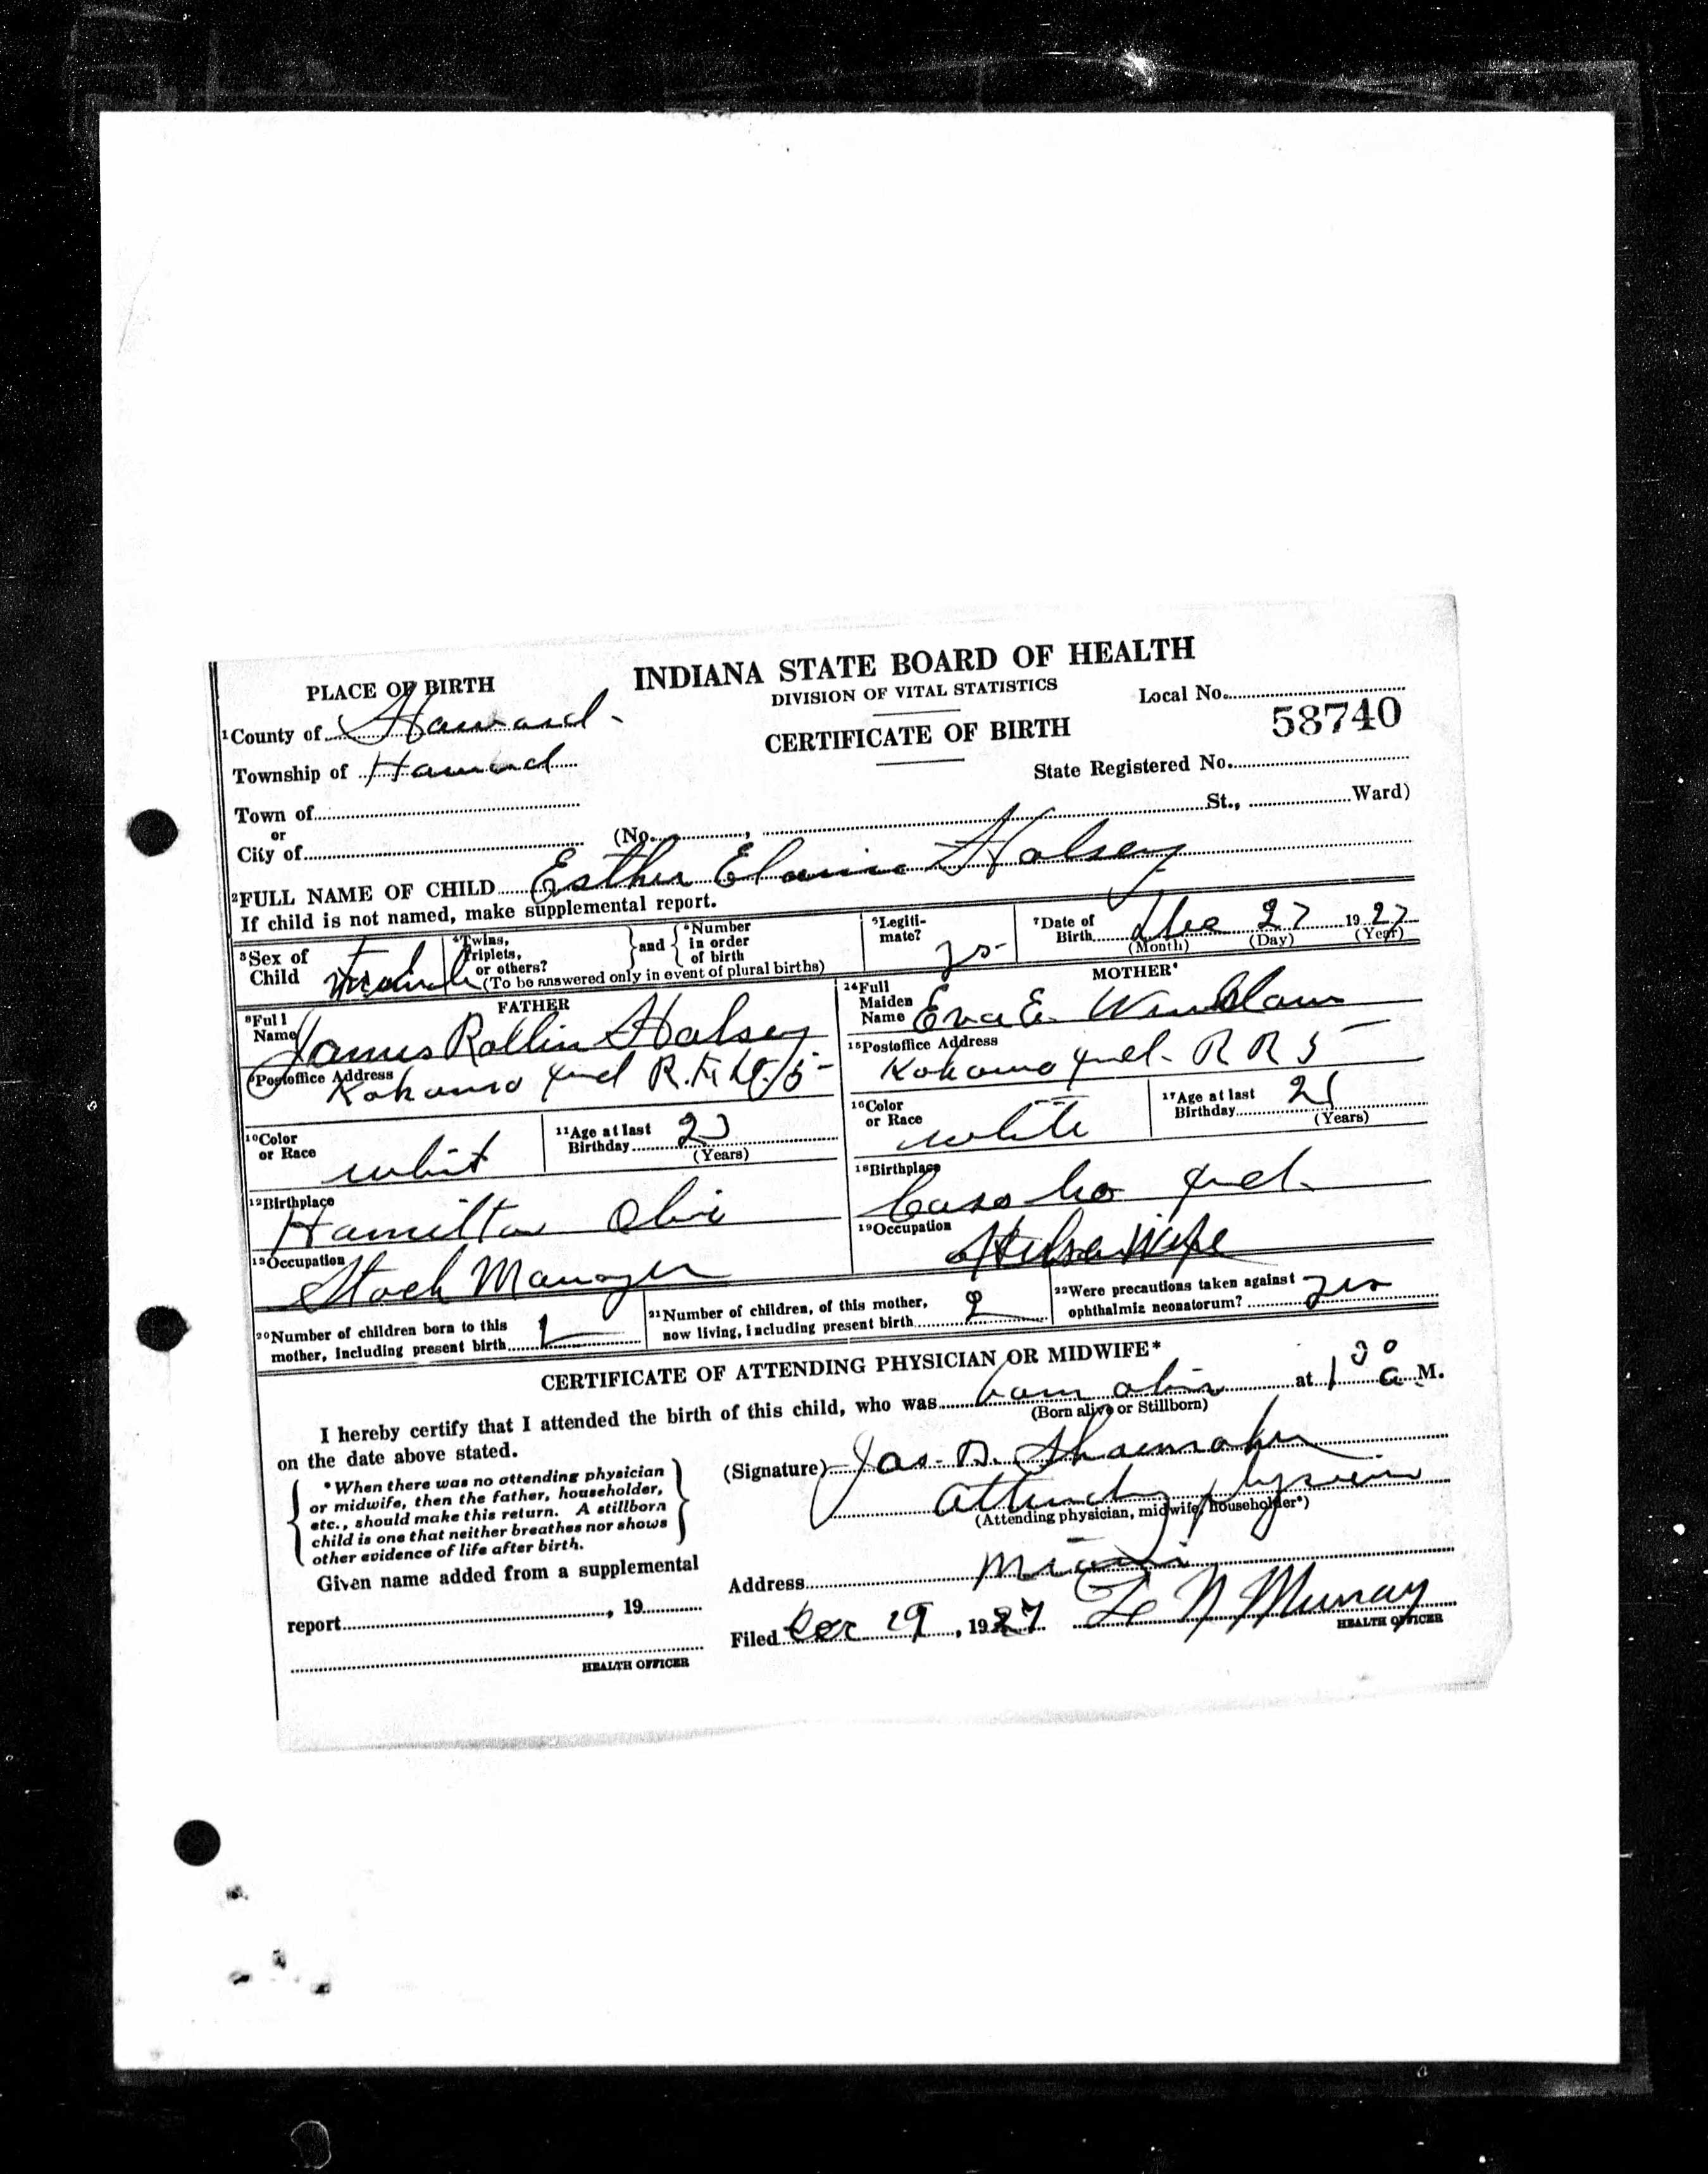 INDIANA STATE BOARD OF HEALTH
DIVISION OF VITAL STATISTICS
CERTIFICATE OF BIRTH
PLACE OF BIRTH
Local No.
58740
State Registered No.
1 County of Howard
Township of Howard
Town of
or
City of
(No. , St., Ward)
2 FULL NAME OF CHILD Esther Elaine Halsey
If child is not named, make supplemental report.
3 Sex of Child Female
4 Twins, Triplets, or others? and 5 Number in order of birth
(To be answered only in event of plural births)
5 Legitimate? yes
7 Date of Birth Dec 27 1927
(Month) (Day) (Year)
FATHER
8 Full Name James Rollin Halsey
9 Postoffice Address
Kokomo Ind R.F.D. 5
10 Color or Race whit
11 Age at last Birthday
(Years)
12 Birthplace
Hamilton Ohio
13 Occupation
Stock Manager
MOTHER
14 Full Maiden Name Eva E.
15 Postoffice Address
Kokomo Ind. R R 5
16 Color or Race white
17 Age at last Birthday
(Years)
18 Birthplace
Cass Co Ind.
19 Occupation
Housewife
20 Number of children born to this mother, including present birth
21 Number of children, of this mother, now living, including present birth
22 Were precautions taken against ophthalmia neonatorum? yes
CERTIFICATE OF ATTENDING PHYSICIAN OR MIDWIFE*
I hereby certify that I attended the birth of this child, who was born alive at 1 30 a M.
(Born alive or Stillborn)
on the date above stated.
* When there was no attending physician
or midwife, then the father, householder,
etc., should make this return. A stillborn
child is one that neither breathes nor shows
other evidence of life after birth.
(Signature) Jas. D. Shoemaker
Attending physician
(Attending physician, midwife, householder*)
Given name added from a supplemental
report , 19
HEALTH OFFICER
Address Miami
Filed Dec 29, 1927 N Murray
HEALTH OFFICER